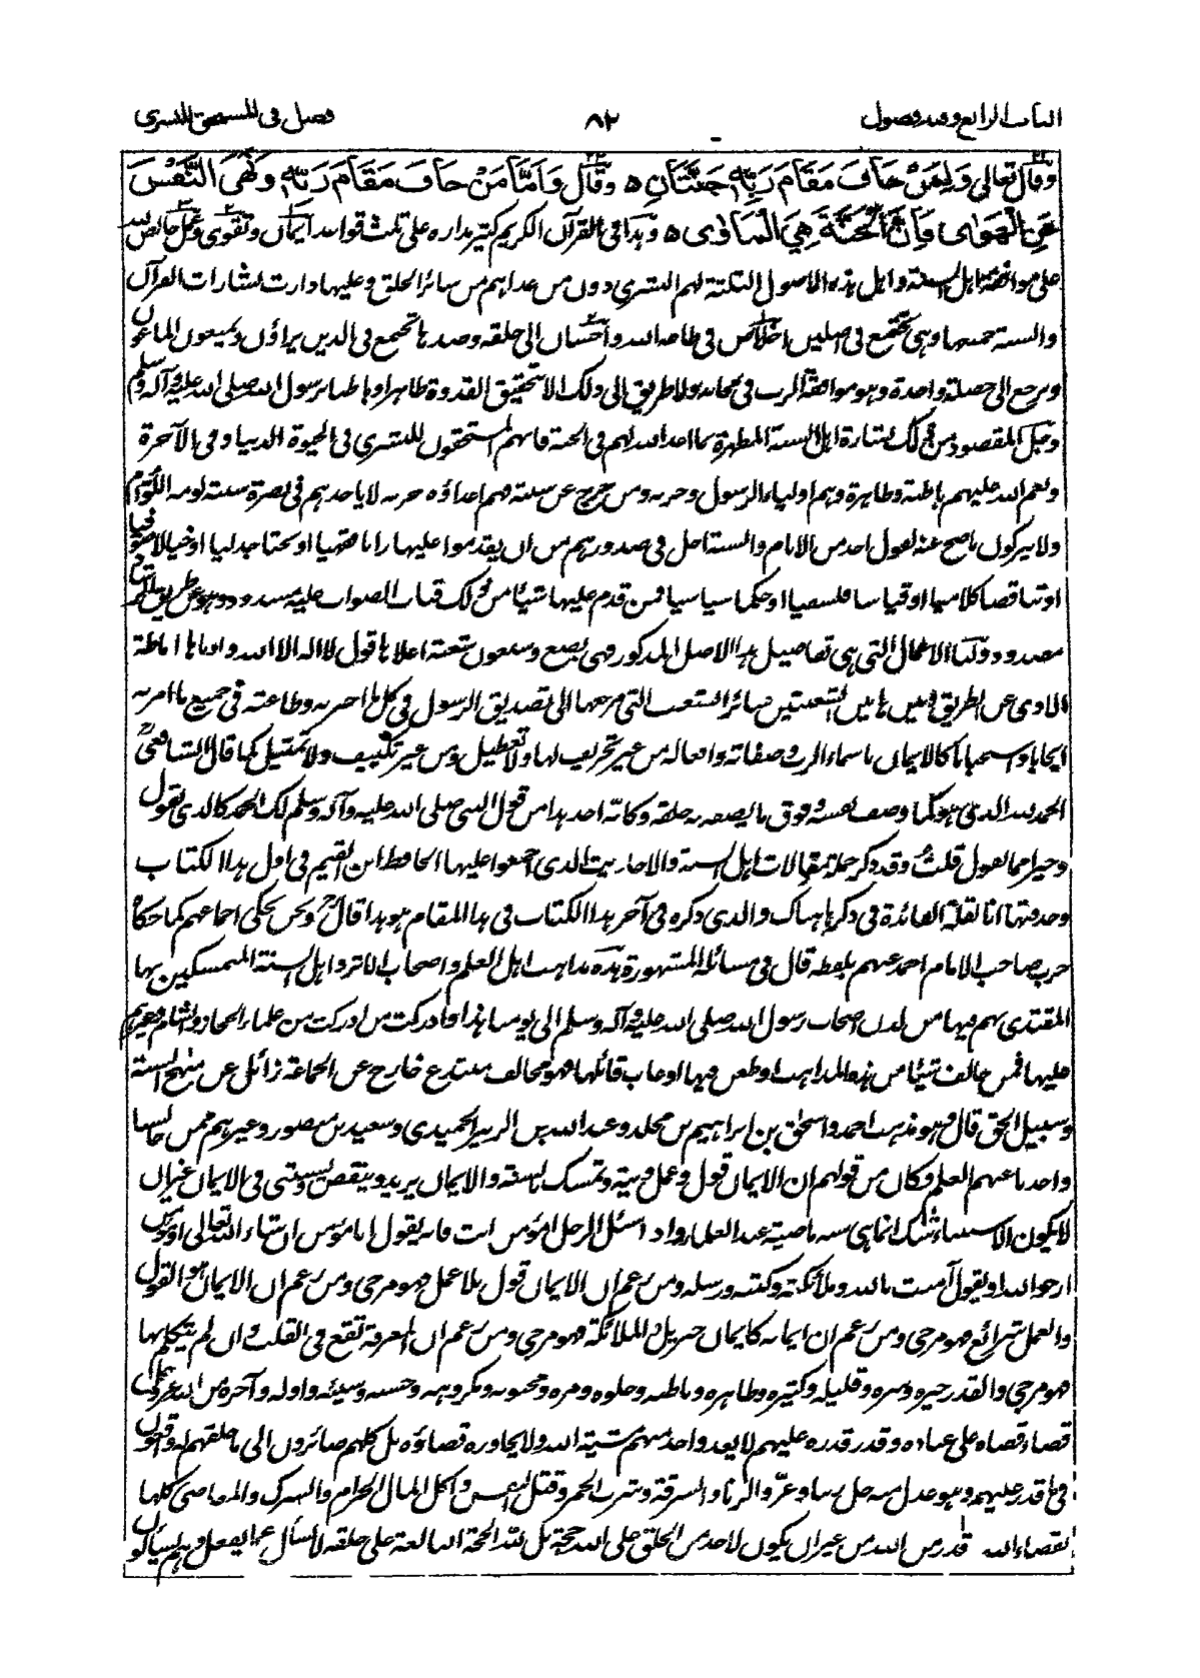 الباب الرابع وفيه فصول ٨٢ فصل في المستحق للبشرى
وقال تعالى وَلِمَنْ خَافَ مَقَامَ رَبِّهِ جَنَّتَانِ ه وقال وَأَمَّا مَنْ خَافَ مَقَامَ رَبِّهِ وَنَهَى النَّفْسَ
عَنِ الْهَوٰى فَإِنَّ الْجَنَّةَ هِيَ الْمَأْوٰى ه وهذا في القرآن الكريم كثير مداره على ثلث قواعد ايمان وتقوى وعمل خالص لله
على موافقة اهل السنة واهل هذه الاصول الثلثة لهم البشرى دون من عداهم من سائر الخلق وعليها دارت بشارات القرآن
والسنة جميعها وهي تجتمع في اصلين اخلاص في طاعة الله واحسان الى خلقه وضدها تجتمع في الذين يراؤن ويمنعون الماعون
ويرجع الى خصلة واحدة وهو موافقة الرب في محابه ولا طريق الى ذلك الا بتحقيق القدوة ظاهرا وباطنا برسول الله صلى الله عليه وآله وسلم
وقبل المقصود من ذلك بشارة اهل السنة المطهرة بما اعد الله لهم في الجنة فانهم المستحقون للبشرى في الحيوة الدنيا وفي الآخرة
ونعم الله عليهم باطنة وظاهرة وهم اولياء الرسول وحزبه ومن خرج عن سنته فهم اعداؤه وحربه لا ياخذهم في نصرة سنته لومة اللوام
ولا يتركون ما صح عنه لقول احد من الانام والسنة اجل في صدورهم من ان يقدموا عليها رايا فقهيا او بحثا جدليا او خيالا صوفيا
او تناقضا كلاميا او قياسا فلسفيا او حكما سياسيا فمن قدم عليها شيئا من ذلك فباب الصواب عليه مسدود وهو عن طريق الرشاد
مصدود واما الاعمال التي هي تفاصيل هذا الاصل المذكور فهي بضع وسبعون شعبة اعلاها قول لا اله الا الله وادناها اماطة
الاذى عن الطريق وبين هاتين الشعبتين سائر الشعب التي مرجعها الى تصديق الرسول في كل ما اخبر به وطاعته في جميع ما امر به
ايجابا واستحبابا كالايمان باسماء الرب وصفاته وافعاله من غير تحريف لها ولا تعطيل ومن غير تكييف ولا تمثيل كما قال الشافعي رح
الحمد لله الذي هو كما وصف نفسه وفوق ما يصفه به خلقه وكانه اخذ هذا من قول النبي صلى الله عليه وآله وسلم لك الحمد كالذي تقول
وخيرا مما نقول قلت وقد ذكر جملة مقالات اهل السنة والاحاديث الذي اجمعوا عليها الحافظ ابن القيم في اول هذا الكتاب
وحذفتها انا لقلة الفائدة في ذكرها هناك والذي ذكره في آخر هذا الكتاب في هذا المقام هو هذا قال رح ونحن نحكي اجماعهم كما حكاه
حرب صاحب الامام احمد عنهم بلفظه قال في مسائله المشهورة هذه مذاهب اهل العلم واصحاب الاثر واهل السنة المتمسكين بها
المقتدى بهم فيها من لدن اصحاب رسول الله صلى الله عليه وآله وسلم الى يومنا هذا وادركت من ادركت من علماء الحجاز والشام وغيرهم
عليها فمن خالف شيئا من هذه المذاهب او طعن فيها او عاب قائلها فهو مخالف مبتدع خارج عن الجماعة زائل عن منهج السنة
وسبيل الحق قال وهو مذهب احمد واسحق بن ابراهيم بن مخلد وعبد الله بن الزبير الحميدي وسعيد بن منصور وغيرهم ممن جالسنا
واخذنا عنهم العلم وكان من قولهم ان الايمان قول وعمل ونية وتمسك بالسنة والايمان يزيد وينقص ويستثنى في الايمان غير ان
لا يكون الاستثناء شكا انما هي سنة ماضية عند العلماء واذا سئل الرجل امؤمن انت فانه يقول انا مؤمن ان شاء الله تعالى او مؤمن
ارجو الله او يقول آمنت بالله وملائكته وكتبه ورسله ومن زعم ان الايمان قول بلا عمل فهو مرجي ومن زعم ان الايمان هو القول
والعمل شرائع فهو مرجي ومن زعم ان ايمانه كايمان جبريل والملائكة فهو مرجي ومن زعم ان المعرفة تقع في القلب وان لم يتكلم بها
فهو مرجي والقدر خيره وشره وقليله وكثيره وظاهره وباطنه وحلوه ومره ومحبوبه ومكروهه وحسنه وسيئه واوله وآخره من الله عز وجل
قضاء قضاه على عباده وقدر قدره عليهم لا يعدو احد منهم مشية الله ولا يجاوزه قضاؤه بل كلهم صائرون الى ما خلقهم له واقعون
فيما قدر عليهم وهو عدل منه جل ربنا وعز والزنا والسرقة وشرب الخمر وقتل النفس واكل المال الحرام والشرك والمعاصي كلها
بقضاء الله وقدر من الله من غير ان يكون لاحد من الخلق على الله حجة بل لله الحجة البالغة على خلقه لا يسأل عما يفعل وهم يسألون